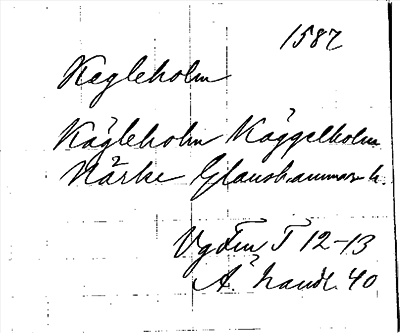 1587
Kegleholm
Kägleholm Käggelholm
Närke Glanshammar h.
Vgdln T 12-13
Ä. handl. 40